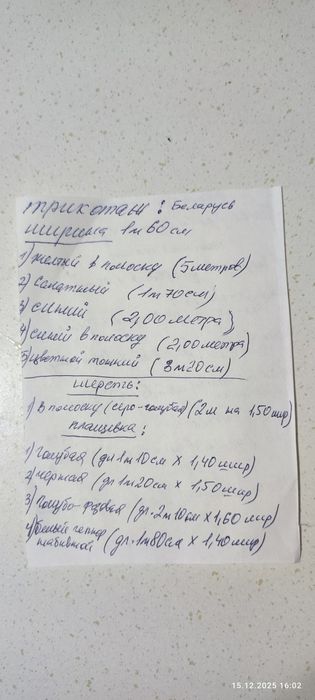 трикотаж: Беларусь
ширина 1м 60 см
1) желтый в полоску (5 метров)
2) Салатный (1м 70 см)
3) синий (2,00 метра)
4) синий в полоску (2,00 метра)
5) цветной тонкий (3м 20 см)
шерсть:
1) в полоску (серо-голубая) (2м на 1,50 шир)
плащевка:
1) голубая (дл 1м 10см х 1,40 шир)
2) черная (дл 1м 20см х 1,50 шир)
3) голубо-розовая (дл. 2м 10см х 1,60 шир)
4) белый
набивной (дл. 1м 80см х 1,40 шир)
15.12.2025 16:02